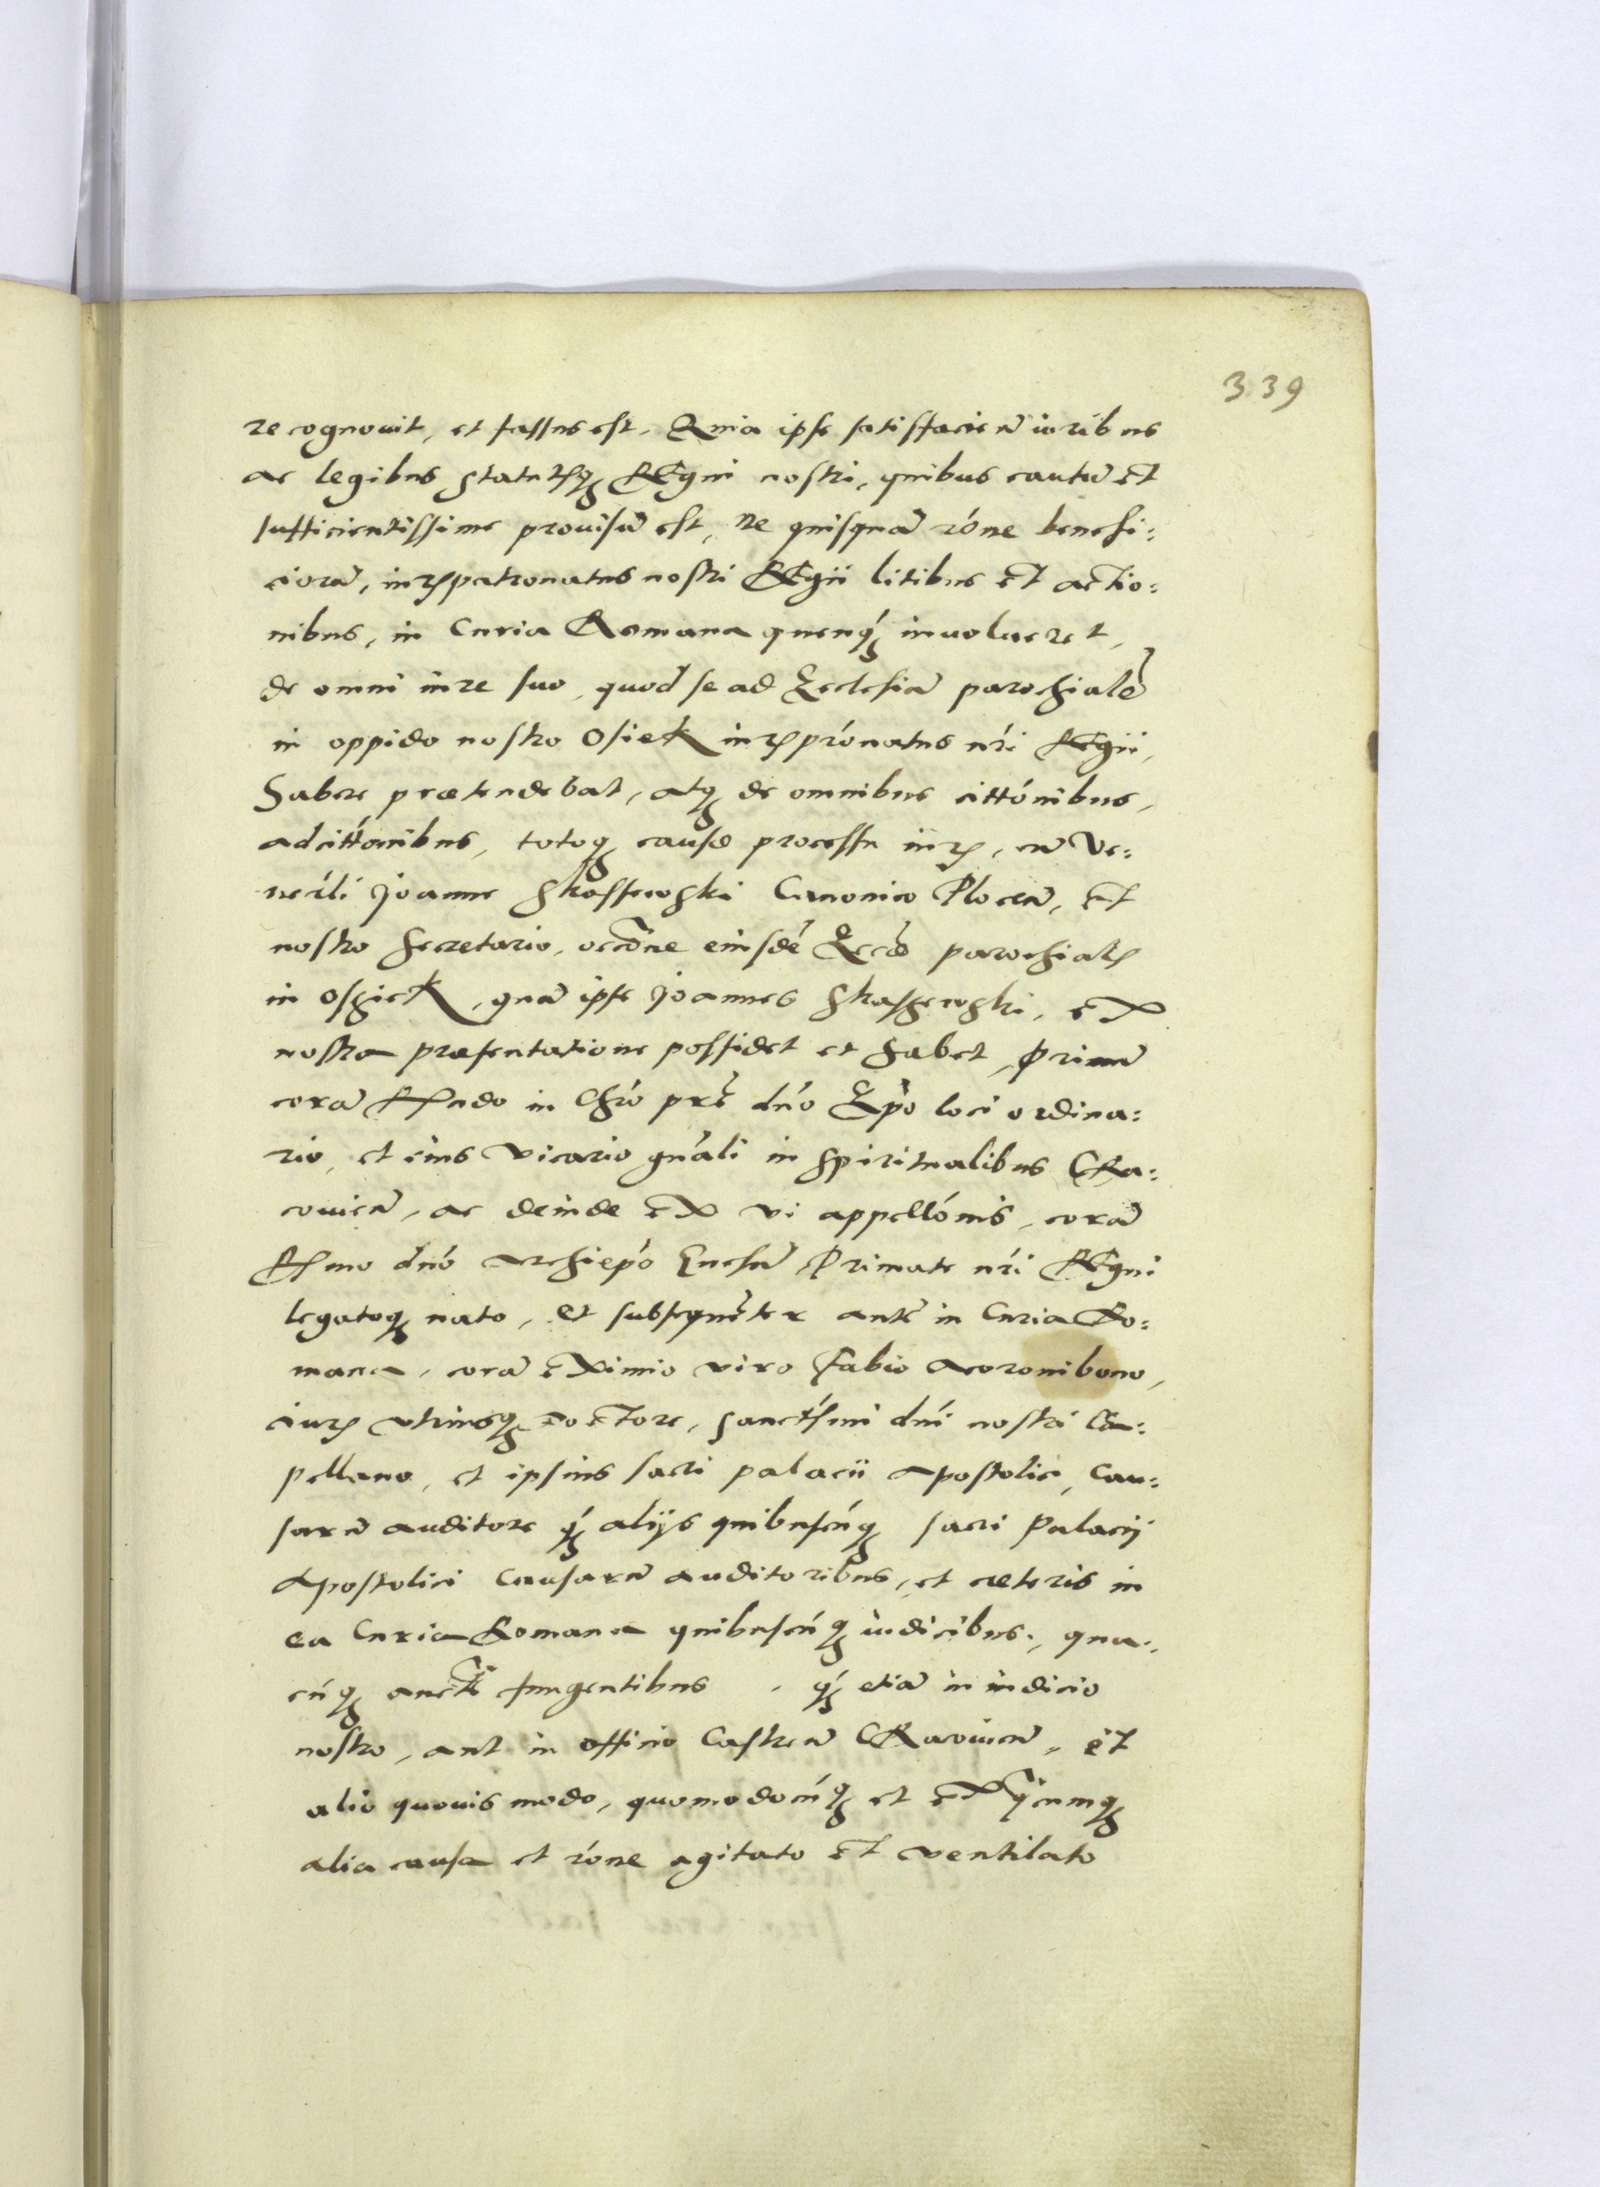 339
recognouit, et fassus est. Quia ipse satisfacień iuribus
ac legibus statutisq3 Regni nostri, quibus cautū et
sufficientissime prouisū est, ne quisquā róne benefi:
ciorū, iuris patronatus nostri Regii litibus et actio:
nibus, in Curia Romana quenq3 inuolueret,
de omni iure suo, quod se ad Ecclesiā parochialē
in oppido nostro Osiek iuris prónatus nri Regii,
habere prætendebat, atq3 de omnibus cittónibus,
adcittónibus, totoq3 causæ processu iuris, cū Ve:
nerli Joanne Skassewski Canonico Plocen̄, et
nostro Secretario, occōne eiusdē Eccæ parochialis
in Osziek, quā ipse Joannes Skaszewski, ex
nostra præsentatione possidet et habet, Primū
corā Rndo in Chro prē dno Epo loci ordina:
rio, et eius Vicario gnali in spiritualibus Cra:
couień, ac deinde ex vi appellónis, corā
Rsmo dno Archiepo Gnesn̄ Primate nri Regni
legatoq3 nato, et subsequēter autē in Curia Ro:
mana, corā eximio viro Fabio Acoronibono,
iuris vtriusq3 doctore, sanctismi dni nostri Ca:
pellano, et ipsius sacri palacii Apostolici, Cau:
sarū auditore q3 alijs quibuscūq3 sacri Palacij
Apostolici Causarū auditoribus, et cæteris in
ea Curia Romana quibuscūq3 iudicibus, qua:
cūq3 auctte fungentibus, q3 etiā in iudicio
nostro, aut in officio Castreń Cracouień, et
alio quouis modo, quomodocūq3 et ex qcumq3
alia causa et róne agitato et ventilato